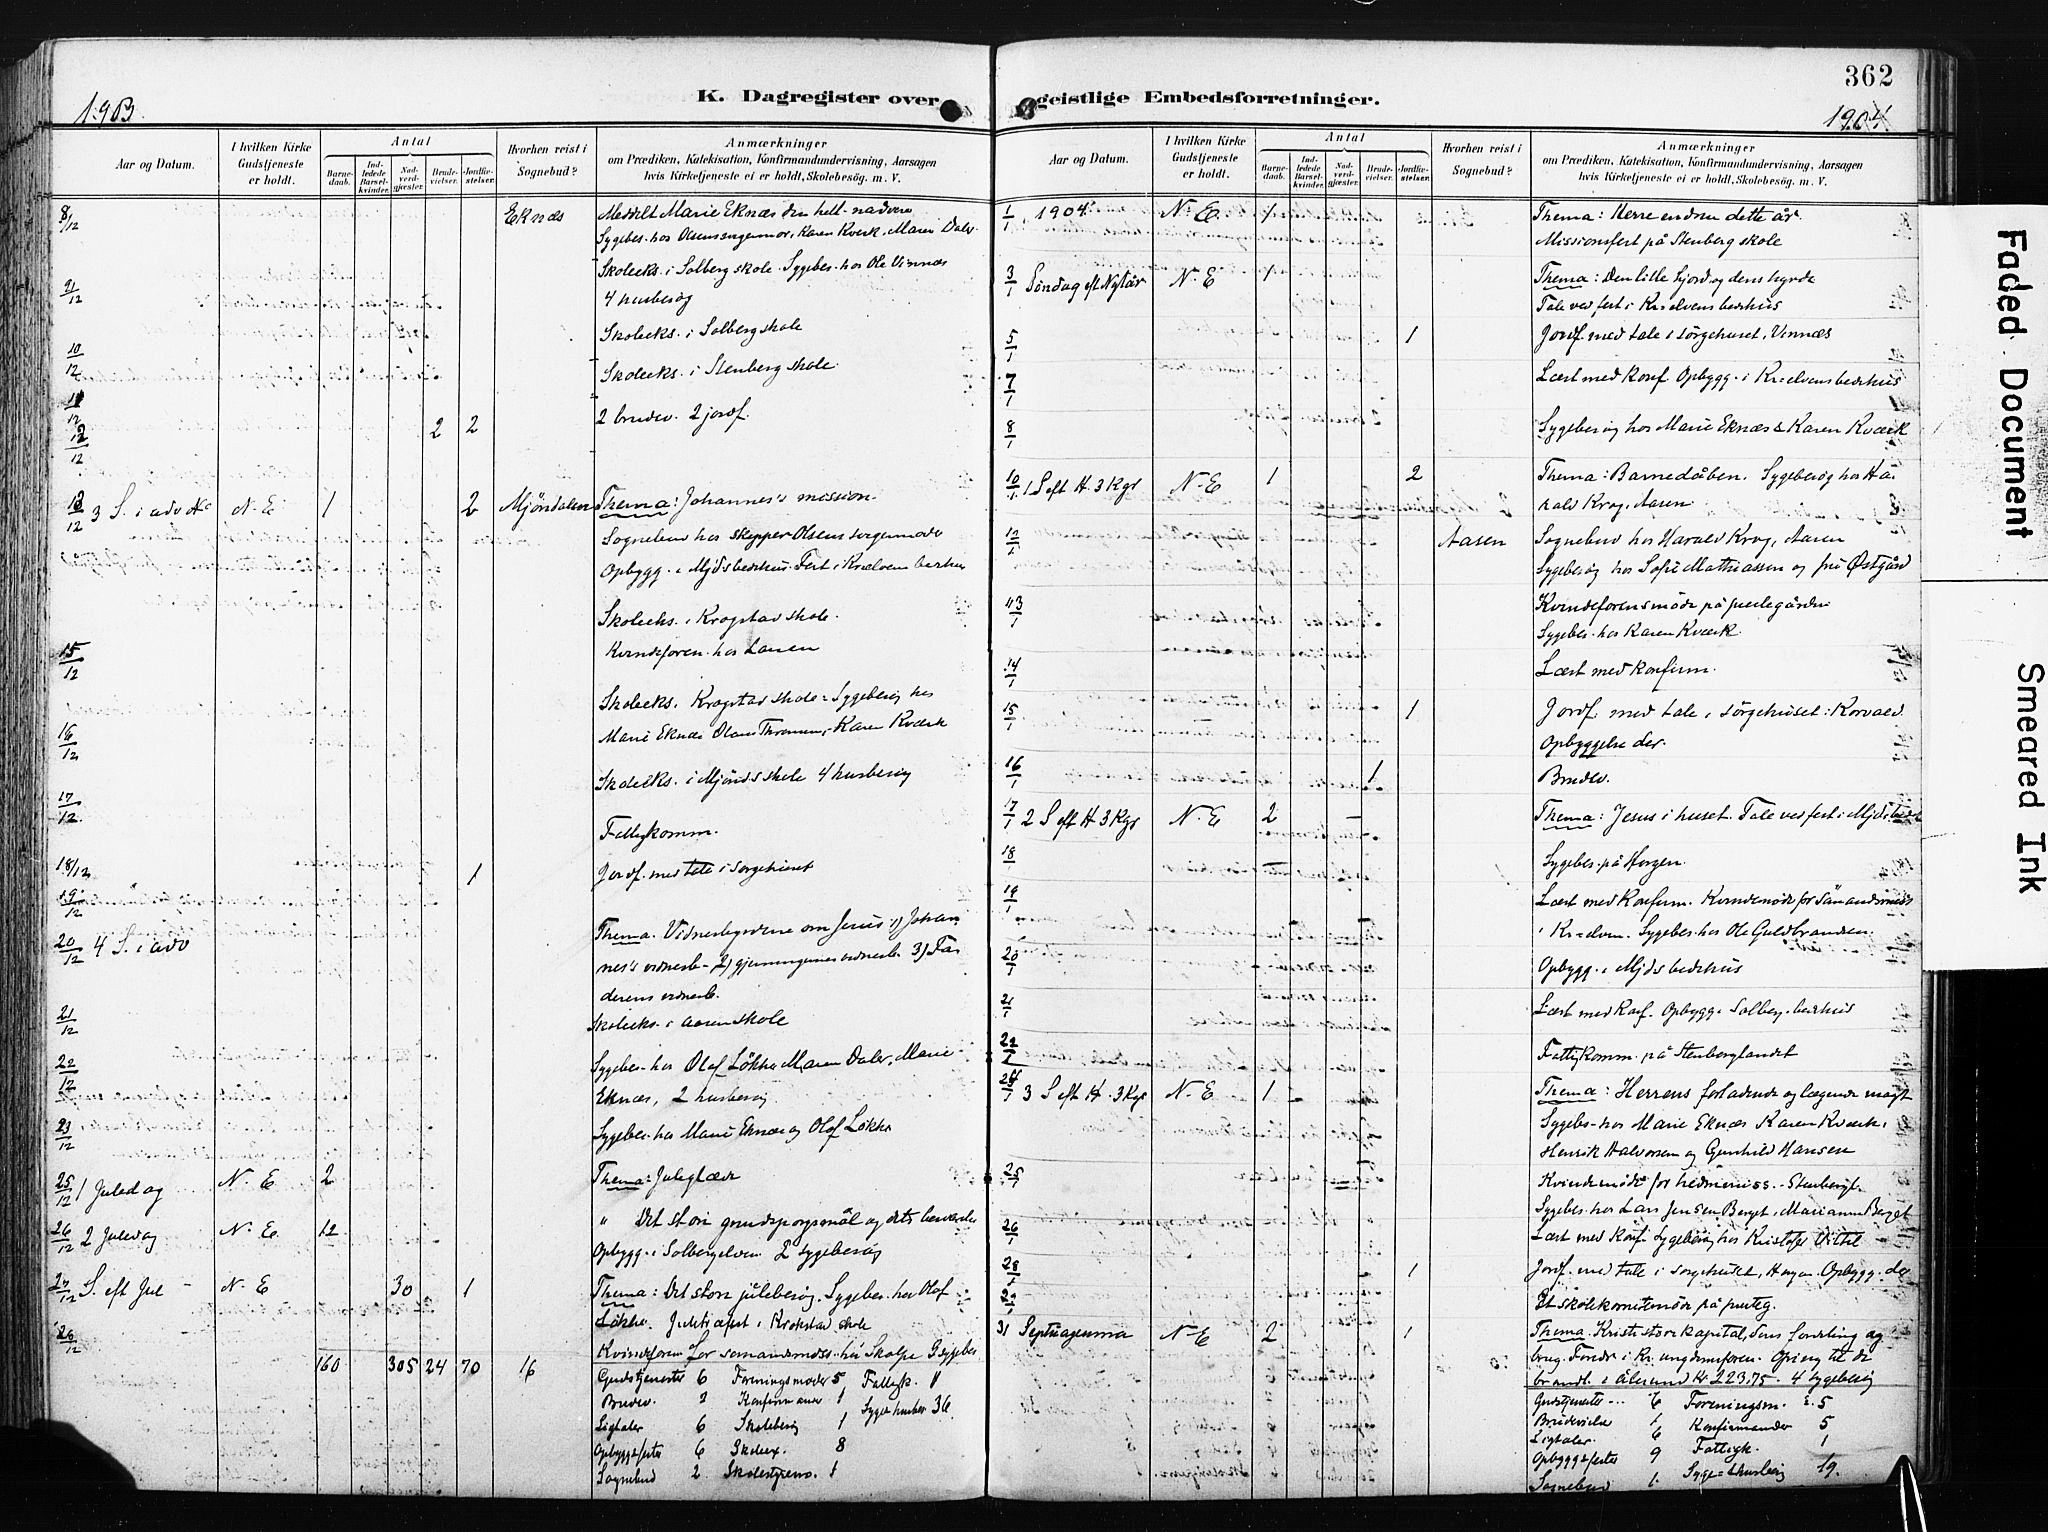 362
1903.
K. Dagregister over
geistlige Embedsforretninger.
1904
Aar og Datum.
I hvilken Kirke Gudstjeneste er holdt.
Antal
Barnedaab.
Indledede Barselkvinder.
Nadverdgjæster.
Brudevielser.
Jordfæstelser.
Hvorhen reist i Sognebud?
Anmærkninger
om Prædiken, Katekisation, Konfirmandundervisning, Aarsagen
hvis Kirketjeneste ei er holdt, Skolebesøg. m. V.
8/12 Eknæs Meddelt Marie Eknæs den hell. nadvere
Sygebes. hos Olsens svigermor, Karen Kværk, Maren Daler
Skoleeks. i Solberg skole. Sygebes. hos Ole Vinnæs
4 husbesøg
Skoleeks. i Solberg skole
10/12 Skoleeks. i Stenberg skole
11/12
12/12 2 2 2 brudev. 2 jordf.
13/12 3 S. i adv N. E 1 2 Mjøndalen Thema: Johannes's mission
Sognebud hos skipper Olsens svigermoder
Opbygg. i Mjds bedehus. Fest i Kr.elven bedehus
Skoleeks. i Krogstad skole.
15/12 Kvindeforen. hos Larsen
Skoleeks. Krogstad skole. Sygebesøg hos
16/12 Marie Eknæs Karen Kværk
Skoleeks. i Mjönds skole 4 husbesøg
17/12
Fattigkomm.
18/12 1 Jordf. med tale i sørgehuset
19/12
20/12 4 S. i adv Thema. Vidnesbyrdene om Jesus 1) Johan
nes's vidnesb. 2) gjerningernes vidnesb. 3) Fa
derens vidnesb.
21/12 Skoleeks. i Aasen skole
22/12 Sygebes. hos Olaf Løkke, Maren Daler, Marie
Eknæs, 2 husbesøg
23/12 Sygebes. hos Marie Eknæs og Olaf Løkke
25/12 1 Juledag N. E 2 Thema: Juleglæde
26/12 2 Juledag N. E. 12 " Det store grundspørgsmål og dets
Opbygg. i Solbergelven 2 sygebesøg
27/12 S. eft Jul N. E 30 1 Thema: Det store julebesøg. Sygebes. hos Olaf
Løkke. Juletræfest i Krokstad skole
Kvindeforen for
160 305 24 70 16
Gudstjenester 6 Foreningsmøder 5 Fattigk. 1
Brudev. 2 Konfirmander 1 Syge husbes 36
Ligtaler 6 Skolebesøg 1
Opbygg. & fester 6 Skoleex. 8
Sognebud 2 Skolestyrem. 1
Aar og Datum.
I hvilken Kirke Gudstjeneste er holdt.
Antal
Barnedaab.
Indledede Barselkvinder.
Nadverdgjæster.
Brudevielser.
Jordfæstelser.
Hvorhen reist i Sognebud?
Anmærkninger
om Prædiken, Katekisation, Konfirmandundervisning, Aarsagen
hvis Kirketjeneste ei er holdt, Skolebesøg. m. V.
1/1 1904 N. E. 1 Thema: Herre endnu dette år
Missionsfest på Stenberg skole
3/1 Söndag eft Nytår N. E 1 Thema: Den lille hjord og dens hyrde
Tale ved fest i Kr.elvens bedehus
5/1 1 Jordf. med tale i sörgehuset, Vinnæs
7/1 Læst med konf. Opbygg. i Kr.elvens bedehus
8/1 Sygebesøg hos Marie Eknæs & Karen Kværk
10/1 1 S eft H. 3 Kgr N. E 1 2 Thema: Barnedåben. Sygebesøg hos Ha
rald Krog, Aasen
12/1 Aasen Sognebud hos Harald Krog, Aasen
Sygebesøg hos Sofie Mathiassen og fru Østgård
13/1 Kvindeforensmøde på prestegården
Sygebes. hos Karen Kværk
14/1 Læst med konfirm.
15/1 1 Jordf. med tale i sørgehuset: Korvald
Opbyggelse der.
16/1 1 Brudev.
17/1 2 S eft H 3 Kgr N. E 2 Thema: Jesus i huset. Tale ved fest i Mjds bedeh
18/1 Sygebes. på Horgen.
19/1 Læst med Konfirm. Kvindemöde for Sømandsmiss
i Kr.elven. Sygebes. hos Ole Guldbrandsen
20/1 Opbygg. i Mjds bedehus
21/1 Læst med Konf. Opbygg. Solberg. bedehus
22/1 Fattigkomm. på Stenberglandet
24/1 3 S eft H. 3 Kgr N. E 1 Thema: Herrens forladende og lægende magt
Sygebes. hos Marie Eknæs Karen Kværk,
Henrik Halvorsen og Gunhild Hansen
25/1 Kvindemöde for hedmemiss. Stenbergl.
Sygebes. hos Lars Jensen Berget, Marianne Berget
26/1 Læst med konf. Sygebesøg hos Kristofer
28/1 1 Jordf. med tale i sørgehuset, Horgen. Opbygg. der
29/1 Et skolekomitemöde på presteg.
31 Septuagesima N. E 2 1 Thema. Kristi store kapital, dens fordeling og
brug. Foredr i Kr. ungdomsforen. Ofring til de
brandl. i Ålesund Kr. 223.75. 4 sygebesøg
Gudstjenester 6 Foreningsm. 5
Brudevielse 1 Konfirmander 5
Ligtaler 6 Fattigk. 1
Opbygg & fester 9 Syge & husbesøg 19.
Sognebud 1
Faded Document
Smeared Ink